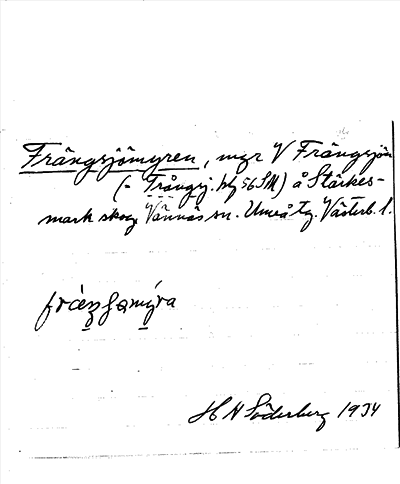 Frängsjömyren, myr V Frängsjön
(= Trångsj. bl 56 SM) å Stärkes-
mark skog Vännäs sn. Umeå tg. Västerb. l.
H N Söderberg 1934